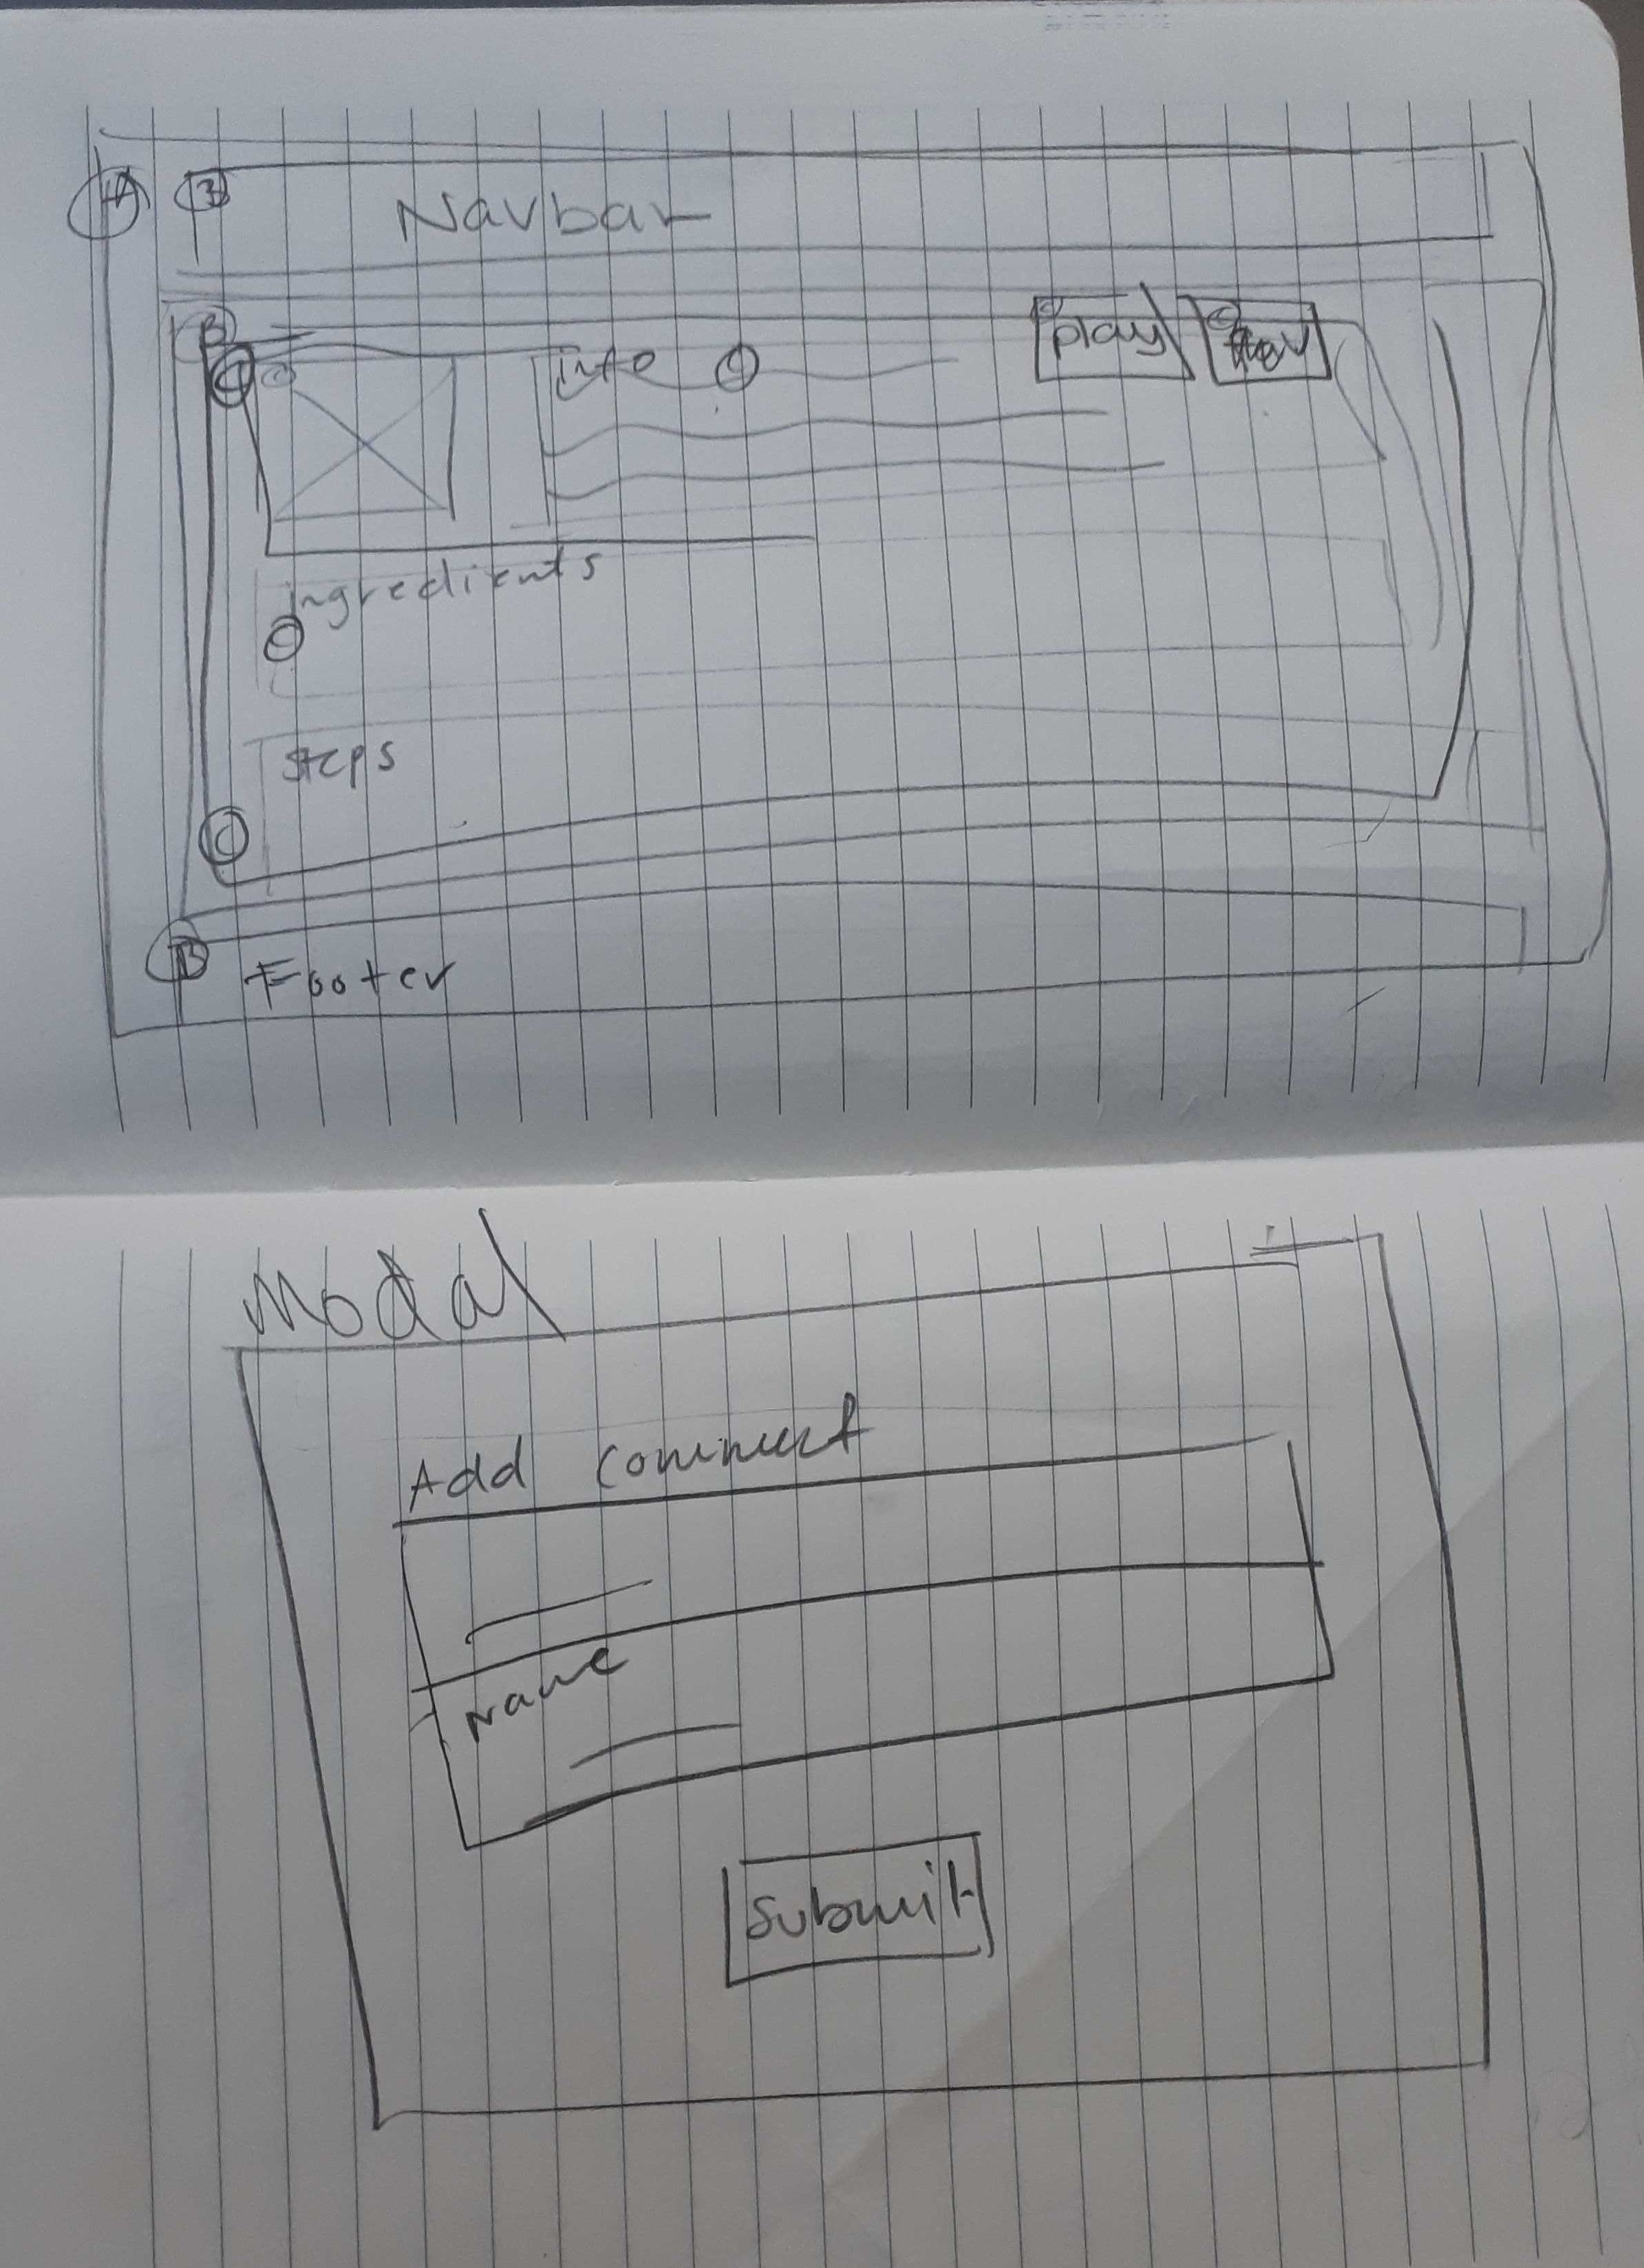 A B Navbar
B
C C info C
C play C
ingredients
C
steps
C
B Footer
Modal
Add comment
Name
Submit